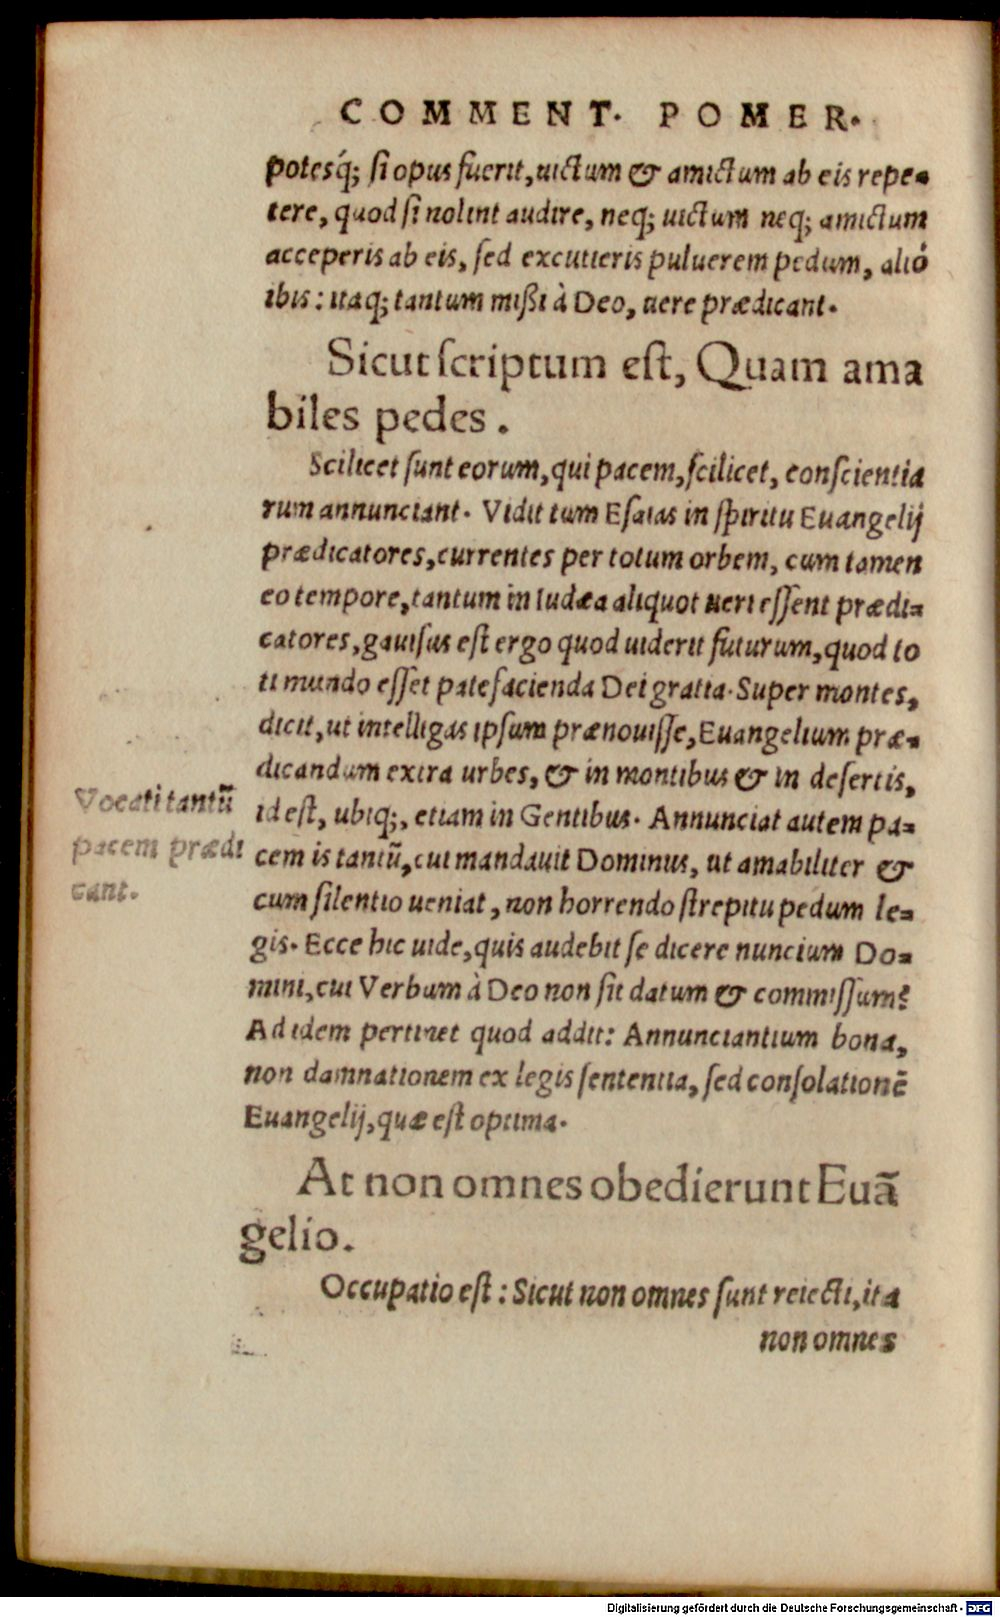 COMMENT. POMER.
potesq́; si opus fuerit, uictum & amictum ab eis repe-
tere, quod si nolint audire, neq; uictum neq; amictum
acceperis ab eis, sed excutieris puluerem pedum, alió
ibis: itaq; tantum mißi à Deo, uere prædicant.
Sicut scriptum est, Quam ama
biles pedes.
Scilicet sunt eorum, qui pacem, scilicet, conscientia
rum annunciant. Vidit tum Esaias in spiritu Euangelij
prædicatores, currentes per totum orbem, cum tamen
eo tempore, tantum in Iudæa aliquot ueri essent prædi-
catores, gauisus est ergo quod uiderit futurum, quod to
ti mundo esset patefacienda Dei gratia. Super montes,
dicit, ut intelligas ipsum prænouisse, Euangelium præ-
dicandum extra urbes, & in montibus & in desertis,
id est, ubiq;, etiam in Gentibus. Annunciat autem pa-
cem is tantũ, cui mandauit Dominus, ut amabiliter &
cum silentio ueniat, non horrendo strepitu pedum le-
gis. Ecce hic uide, quis audebit se dicere nuncium Do-
mini, cui Verbum à Deo non sit datum & commissum?
Ad idem pertinet quod addit: Annunciantium bona,
non damnationem ex legis sententia, sed consolationẽ
Euangelij, quæ est optima.
Vocati tantũ
pacem prædi
cant.
At non omnes obedierunt Euã
gelio.
Occupatio est: Sicut non omnes sunt reiecti, ita
non omnes
Digitalisierung gefördert durch die Deutsche Forschungsgemeinschaft - DFG